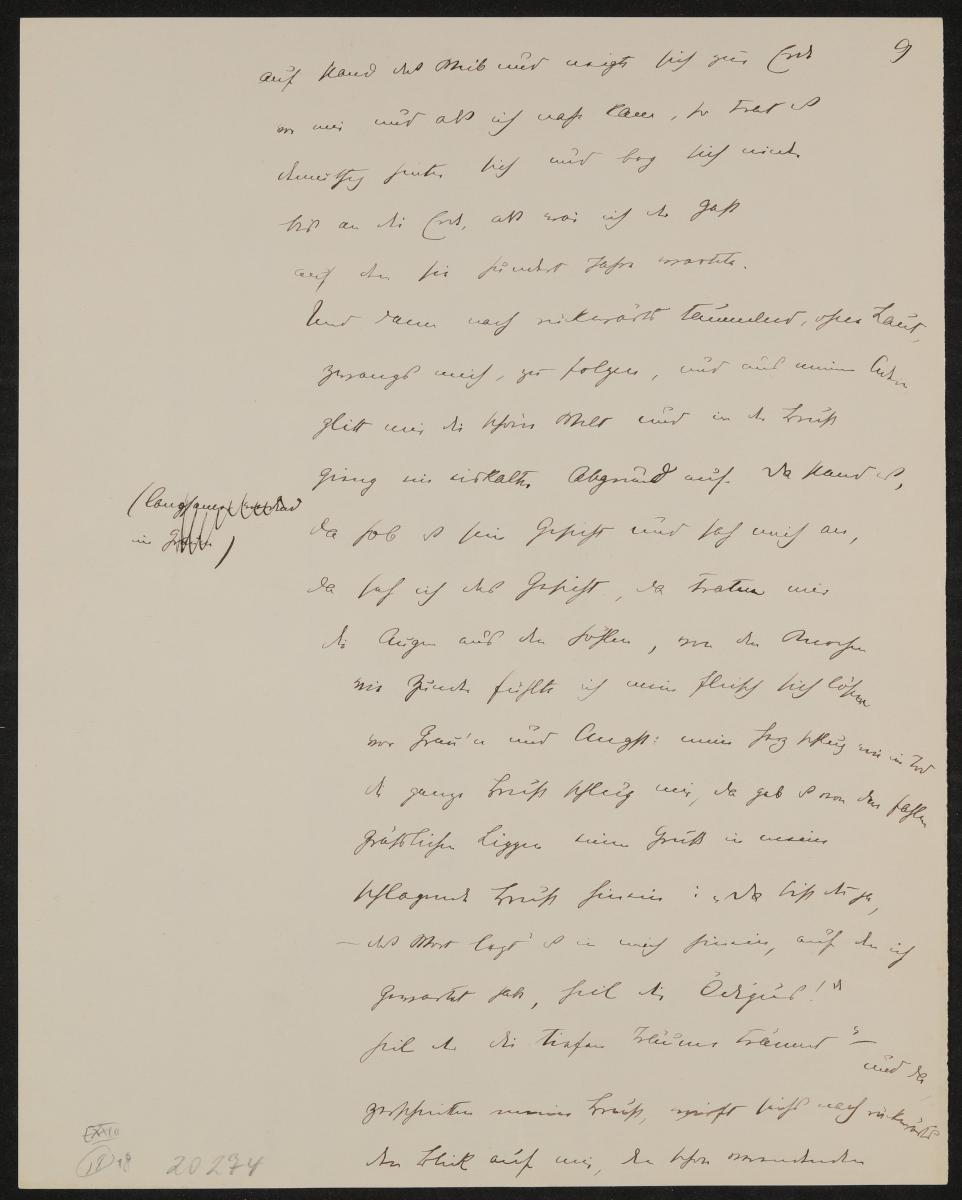 9
auf stand das Weib und neigte sich zur Erde
vor mir und als ich nahe kam, so trat es
demüthig hinter sich und bog sich nieder
bis an die Erde, als wär ich der Gast
auf den sie hundert Jahre wartete.
Und dann nach rückwärts taumelnd, ohne Laut,
zwangs mich, zu folgen, und aus meinen Adern
glitt mir die schöne Welt und in der Brust
gieng ein eiskalter Abgrund auf. Da stand es,
(langsamer
im
da hob es sein Gesicht und sah mich an,
da sah ich das Gesicht, da traten mir
die Augen aus den Höhlen, von den Knochen
wie Zunder fühlte ich mein Fleisch sich lösen
vor Grau'n und Angst: mein Herz schlug nur im Tod
die ganze Brust schlug mir, da gab es von den fahlen
gräßlichen Lippen seinen Gruß in meine
schlagende Brust hinein: „Da bist du ja,
— das Wort legt' es in mich hinein, auf den ich
gewartet habe, heil dir Ödipus!"
heil der die tiefen Träume träumt" —
und da
zerschnitten meine Brust, wirft sichs nach rückwärts
den Blick auf mir, den schon verendenden
20274